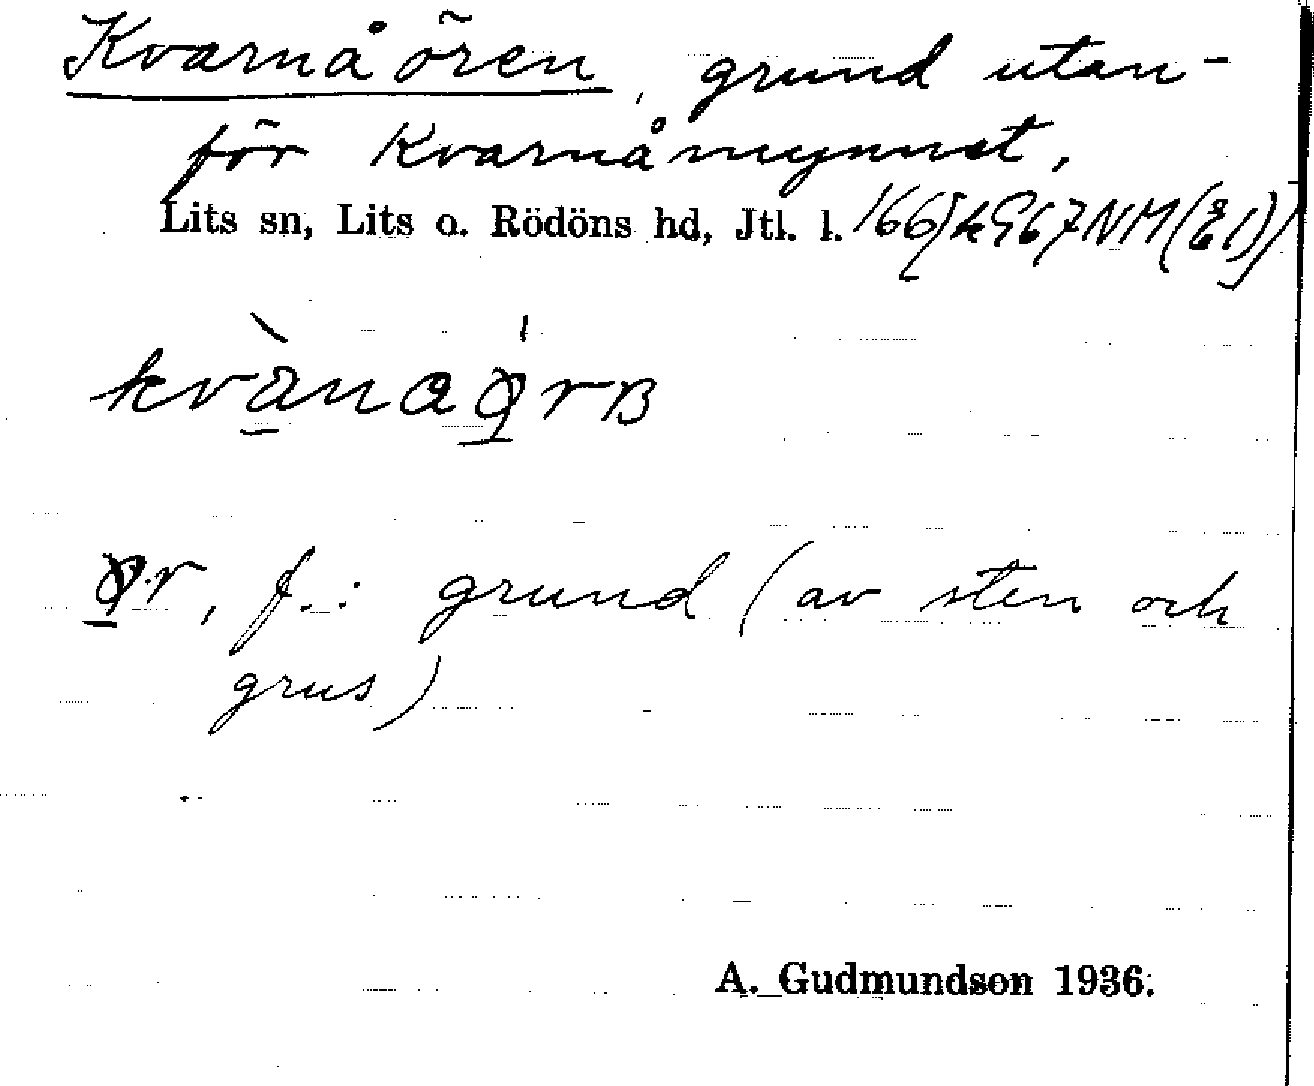 Kvarnåören, grund utan-
för Kvarnåmynnet.
Lits sn, Lits o. Rödöns hd, Jtl. l.
ör, f.: grund (av sten och
grus)
A. Gudmundson 1936.